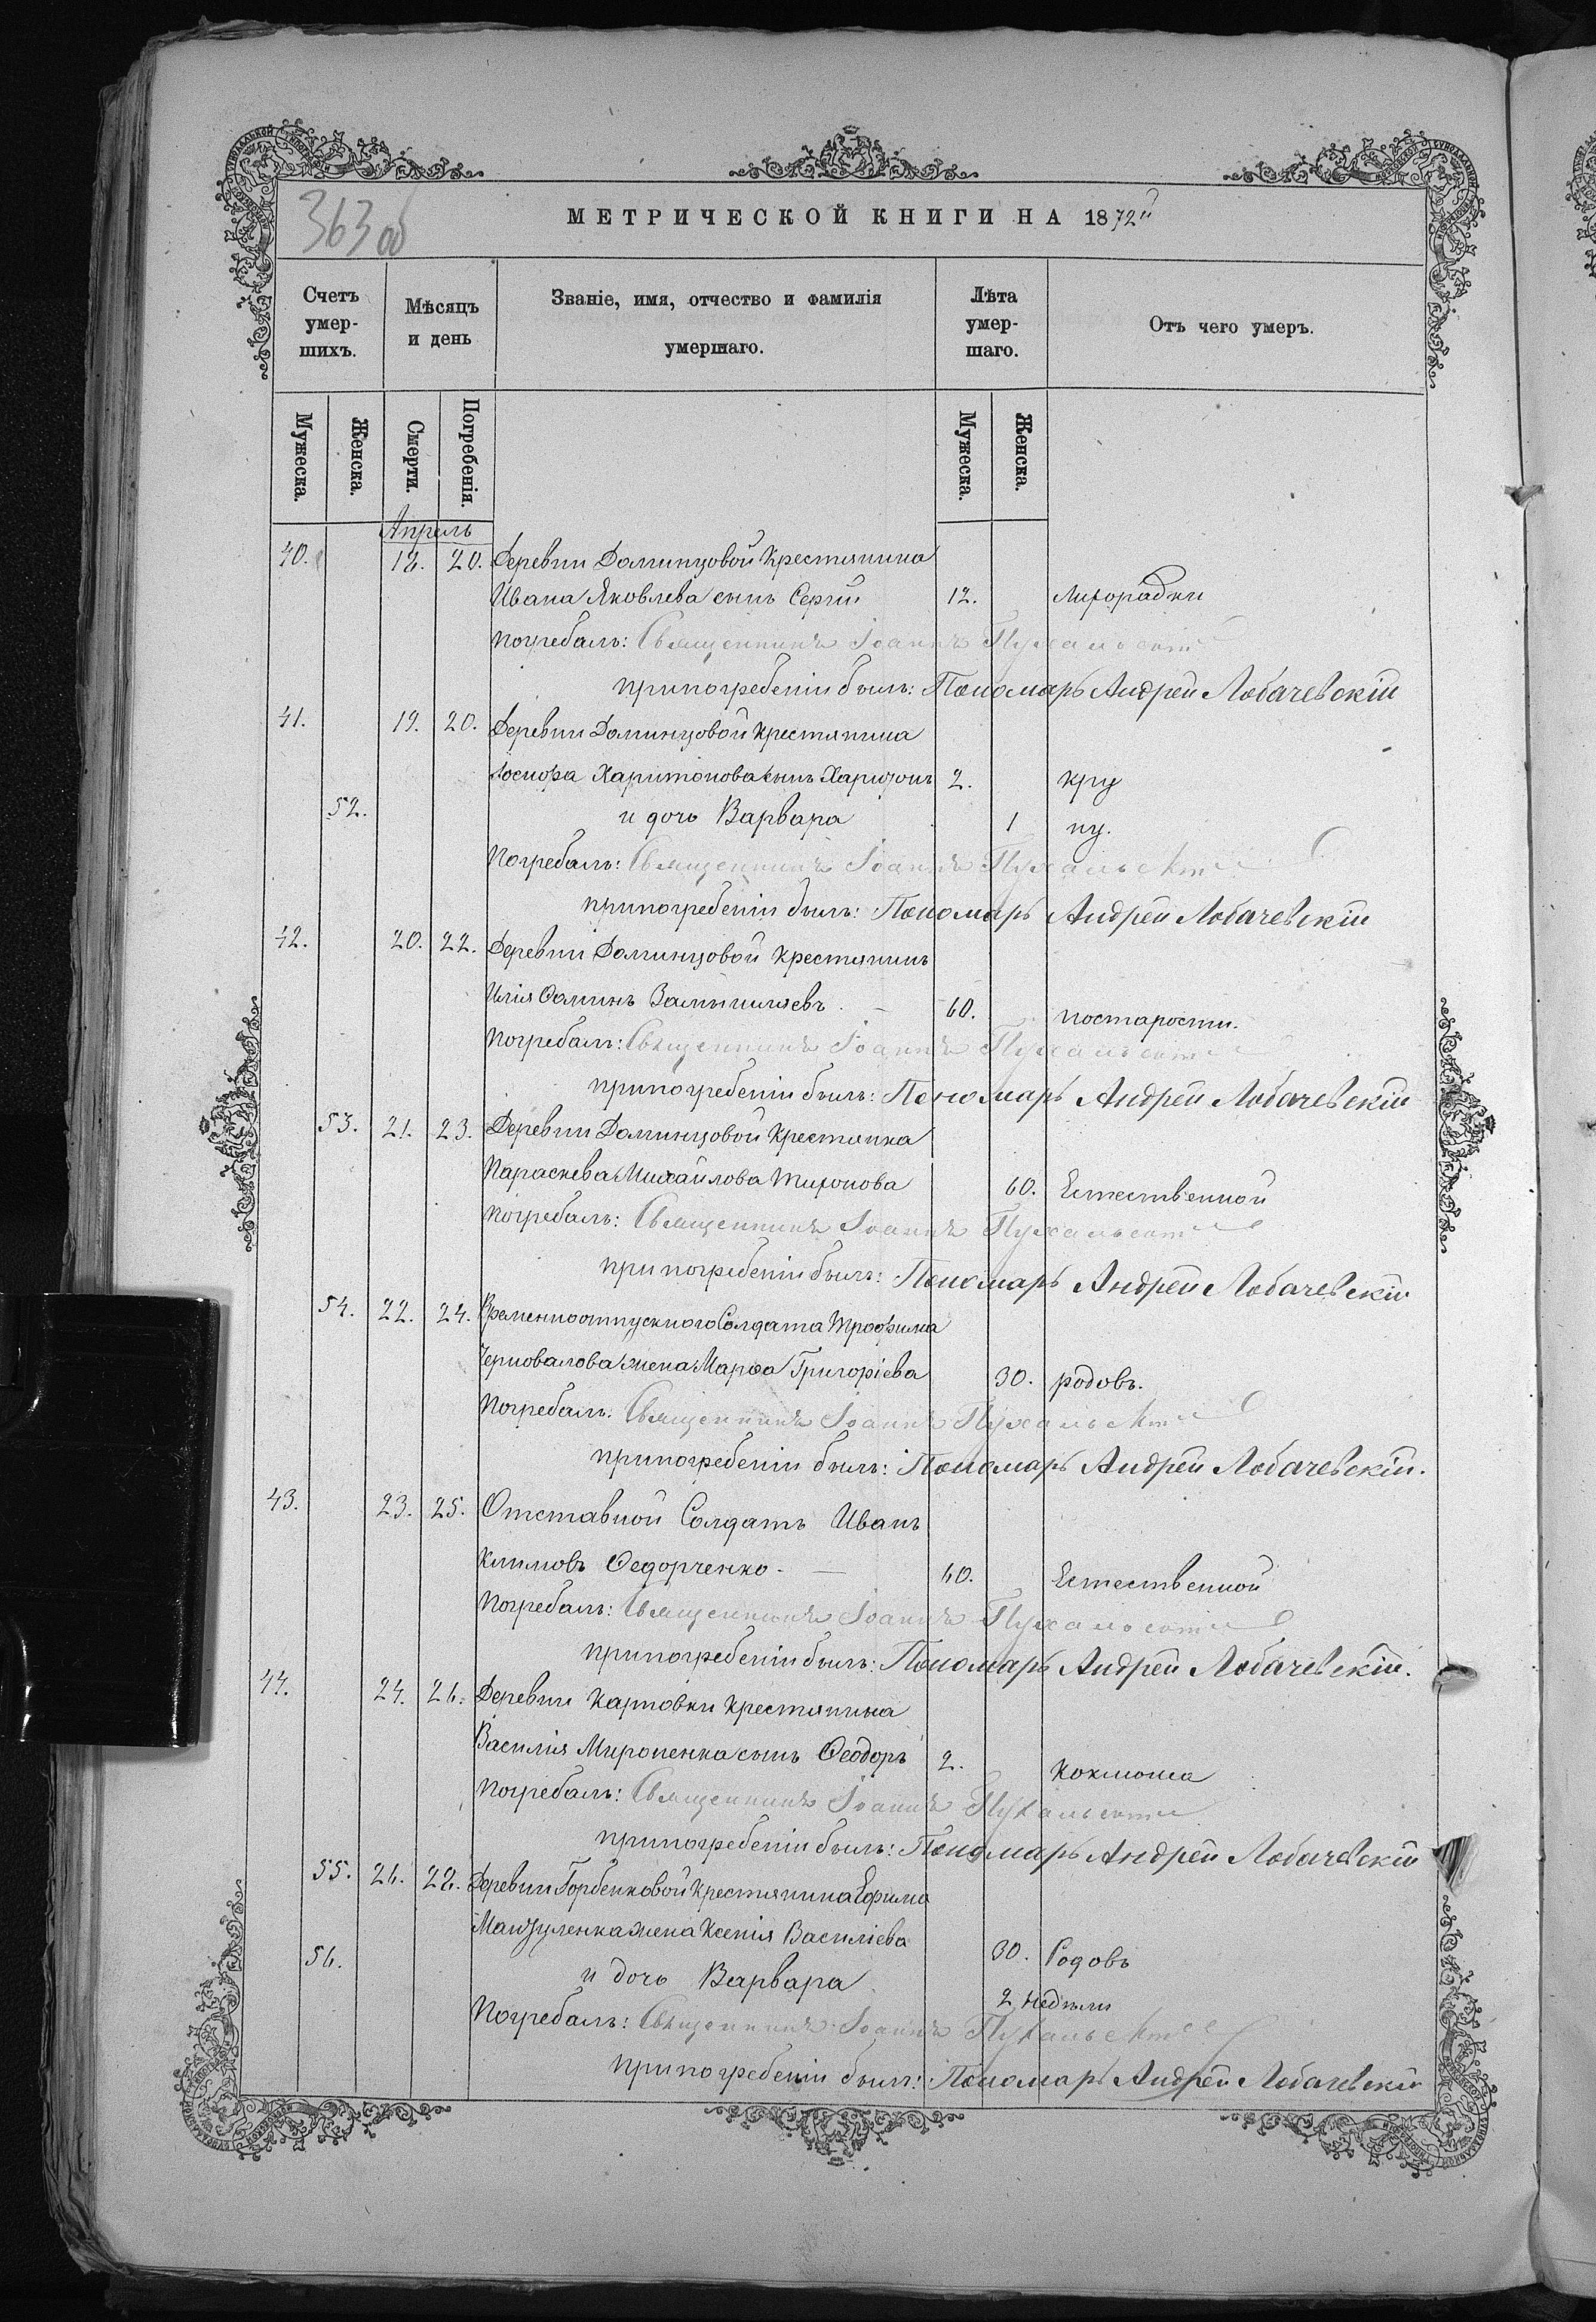 363 об
МЕТРИЧЕСКОЙ КНИГИ НА 1872й
Счетъ умер-шихъ.
Мѣсяцъ и день
Званіе, имя, отчество и фамилія умершаго.
Лѣта умер-шаго.
Отъ чего умеръ.
Мужеска.
Женска.
Смерти.
Погребенія.
Мужеска.
Женска.
Апрель
40. 18. 20. Деревни Доминцовой Крестянина
Ивана Яковлева сынъ Сергій 12. Лихорадки
Погребалъ: Священникъ Іоаннъ Пухальскій
при погребеніи былъ: Пономарь Андрей Лобачевскій
41. 19. 20. Деревни Доминцовой Крестянина
Іосифа Харитонова сынъ Харитонъ 2. кру
52. и дочь Варвара 1 пу.
Погребалъ: Священникъ Іоаннъ Пухальскій
при погребеніи былъ: Пономарь Андрей Лобачевскій
42. 20. 22. Деревни Доминцовой Крестянинъ
Илія Ѳоминъ 60. по старости.
Погребалъ: Священникъ Іоаннъ Пухальскій
при погребеніи былъ: Пономарь Андрей Лобачевскій
53. 21. 23. Деревни Доминцовой Крестянка
Параскева Михайлова Тихонова 60. Естественной
Погребалъ: Священникъ Іоаннъ Пухальскій
при погребеніи былъ: Пономарь Андрей Лобачевскій
54. 22. 24. Временноотпускного Солдата Трофима
Черновалова жена Марѳа Григоріева 30. родовъ.
Погребалъ. Священникъ Іоаннъ Пухальскій
при погребеніи былъ: Пономарь Андрей Лобачевскій.
43. 23. 25. Отставной Солдатъ Иванъ
Климовъ Ѳедорченко. — 60. Естественной
Погребалъ: Священникъ Іоаннъ Пухальскій
при погребеніи былъ: Пономарь Андрей Лобачевскій.
44. 24. 26. Деревни Карповки Крестянина
Василія Мироненка сынъ Ѳеодоръ 2. Коклюша
Погребалъ: Священникъ Іоаннъ Пухальскій
при погребеніи былъ: Пономарь Андрей Лобачевскій
55. 26. 28. Деревни Горбенковой Крестянина Ефима
Манзуленка жена Ксенія Василіева 30. Родовъ
56. и дочь Варвара 2 недѣли
Погребалъ: Священникъ Іоаннъ Пухальскій
при погребеніи былъ: Пономарь Андрей Лобачевскій